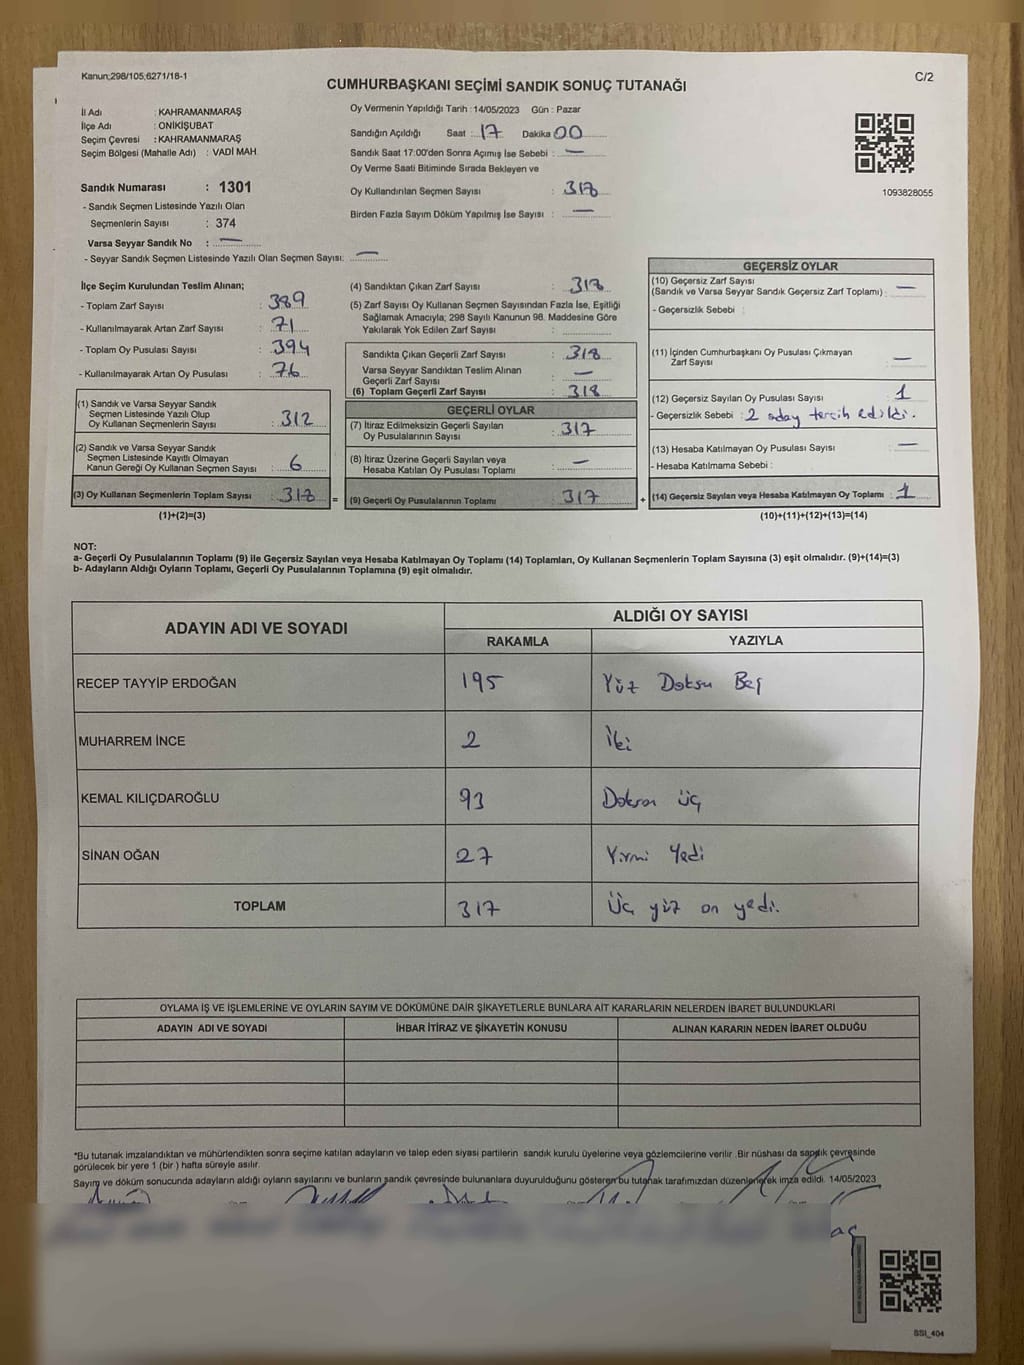 Kanun;298/105;6271/16-1
C/2
CUMHURBAŞKANI SEÇİMİ SANDIK SONUÇ TUTANAĞI
İl Adı : KAHRAMANMARAŞ
İlçe Adı : ONİKİŞUBAT
Seçim Çevresi : KAHRAMANMARAŞ
Seçim Bölgesi (Mahalle Adı) : VADİ MAH.
Sandık Numarası : 1301
- Sandık Seçmen Listesinde Yazılı Olan
Seçmenlerin Sayısı : 374
Varsa Seyyar Sandık No : —
- Seyyar Sandık Seçmen Listesinde Yazılı Olan Seçmen Sayısı: —
Oy Vermenin Yapıldığı Tarih : 14/05/2023 Gün : Pazar
Sandığın Açıldığı Saat : 17 Dakika 00
Sandık Saat 17:00'den Sonra Açımış İse Sebebi : —
Oy Verme Saati Bitiminde Sırada Bekleyen ve
Oy Kullandırılan Seçmen Sayısı : 318
Birden Fazla Sayım Döküm Yapılmış İse Sayısı : —
1093828055
İlçe Seçim Kurulundan Teslim Alınan;
- Toplam Zarf Sayısı : 389
- Kullanılmayarak Artan Zarf Sayısı : 71
- Toplam Oy Pusulası Sayısı : 394
- Kullanılmayarak Artan Oy Pusulası : 76
(1) Sandık ve Varsa Seyyar Sandık
Seçmen Listesinde Yazılı Olup
Oy Kullanan Seçmenlerin Sayısı : 312
(2) Sandık ve Varsa Seyyar Sandık
Seçmen Listesinde Kayıtlı Olmayan
Kanun Gereği Oy Kullanan Seçmen Sayısı : 6
(3) Oy Kullanan Seçmenlerin Toplam Sayısı : 318 =
(1)+(2)=(3)
(4) Sandıktan Çıkan Zarf Sayısı : 318
(5) Zarf Sayısı Oy Kullanan Seçmen Sayısından Fazla İse, Eşitliği
Sağlamak Amacıyla; 298 Sayılı Kanunun 98. Maddesine Göre
Yakılarak Yok Edilen Zarf Sayısı :
Sandıkta Çıkan Geçerli Zarf Sayısı : 318
Varsa Seyyar Sandıktan Teslim Alınan
Geçerli Zarf Sayısı : —
(6) Toplam Geçerli Zarf Sayısı : 318
GEÇERLİ OYLAR
(7) İtiraz Edilmeksizin Geçerli Sayılan
Oy Pusulalarının Sayısı : 317
(8) İtiraz Üzerine Geçerli Sayılan veya
Hesaba Katılan Oy Pusulası Toplamı : —
(9) Geçerli Oy Pusulalarının Toplamı : 317 +
GEÇERSİZ OYLAR
(10) Geçersiz Zarf Sayısı
(Sandık ve Varsa Seyyar Sandık Geçersiz Zarf Toplamı) : —
- Geçersizlik Sebebi :
(11) İçinden Cumhurbaşkanı Oy Pusulası Çıkmayan
Zarf Sayısı : —
(12) Geçersiz Sayılan Oy Pusulası Sayısı : 1
- Geçersizlik Sebebi : 2 aday tercih edildi.
(13) Hesaba Katılmayan Oy Pusulası Sayısı : —
- Hesaba Katılmama Sebebi :
(14) Geçersiz Sayılan veya Hesaba Katılmayan Oy Toplamı : 1
(10)+(11)+(12)+(13)=(14)
NOT:
a- Geçerli Oy Pusulalarının Toplamı (9) ile Geçersiz Sayılan veya Hesaba Katılmayan Oy Toplamı (14) Toplamları, Oy Kullanan Seçmenlerin Toplam Sayısına (3) eşit olmalıdır. (9)+(14)=(3)
b- Adayların Aldığı Oyların Toplamı, Geçerli Oy Pusulalarının Toplamına (9) eşit olmalıdır.
ADAYIN ADI VE SOYADI ALDIĞI OY SAYISI
RAKAMLA YAZIYLA
RECEP TAYYİP ERDOĞAN 195 Yüz Doksn Beş
MUHARREM İNCE 2 İki
KEMAL KILIÇDAROĞLU 93 Doksan üç
SİNAN OĞAN 27 Yirmi Yedi
TOPLAM 317 Üç yüz on yedi.
OYLAMA İŞ VE İŞLEMLERİNE VE OYLARIN SAYIM VE DÖKÜMÜNE DAİR ŞİKAYETLERLE BUNLARA AİT KARARLARIN NELERDEN İBARET BULUNDUKLARI
ADAYIN ADI VE SOYADI İHBAR İTİRAZ VE ŞİKAYETİN KONUSU ALINAN KARARIN NEDEN İBARET OLDUĞU
*Bu tutanak imzalandıktan ve mühürlendikten sonra seçime katılan adayların ve talep eden siyasi partilerin sandık kurulu üyelerine veya gözlemcilerine verilir .Bir nüshası da sandık çevresinde
görülecek bir yere 1 (bir ) hafta süreyle asılır.
Sayım ve döküm sonucunda adayların aldığı oyların sayılarını ve bunların sandık çevresinde bulunanlara duyurulduğunu gösteren bu tutanak tarafımızdan düzenlenerek imza edildi. 14/05/2023
BSI_404